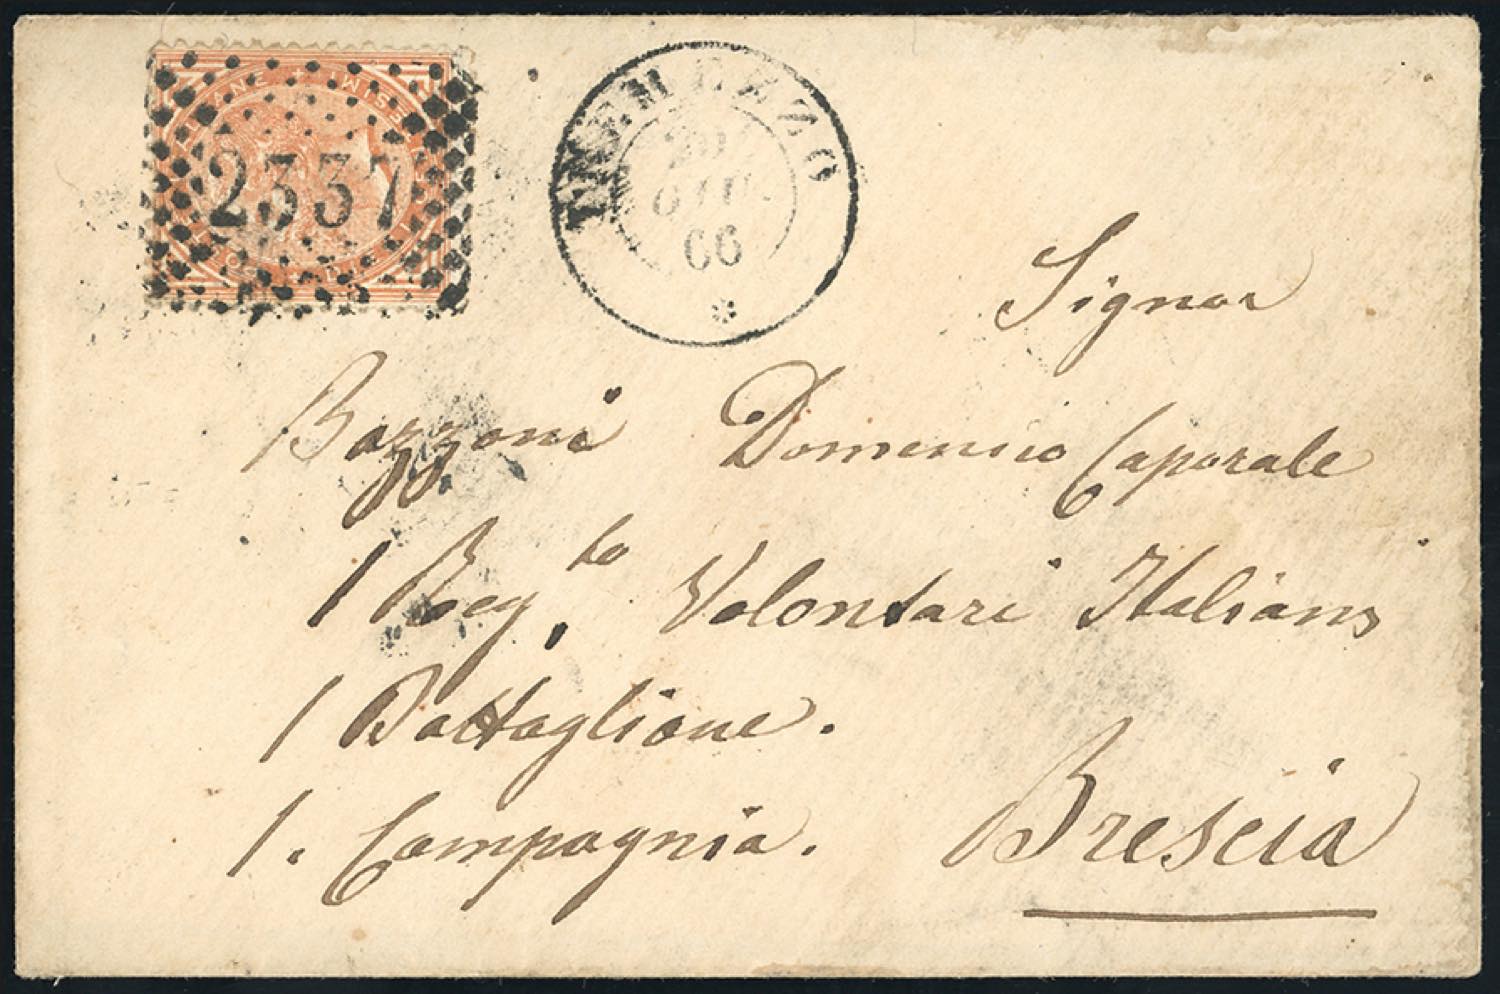 2337
TREMEZZO
20
GIU.
66
Signor
Bozzoni Domenico Caporale
1 Reg.to Volontari Italiani
1 Battaglione.
1. Compagnia.
Brescia